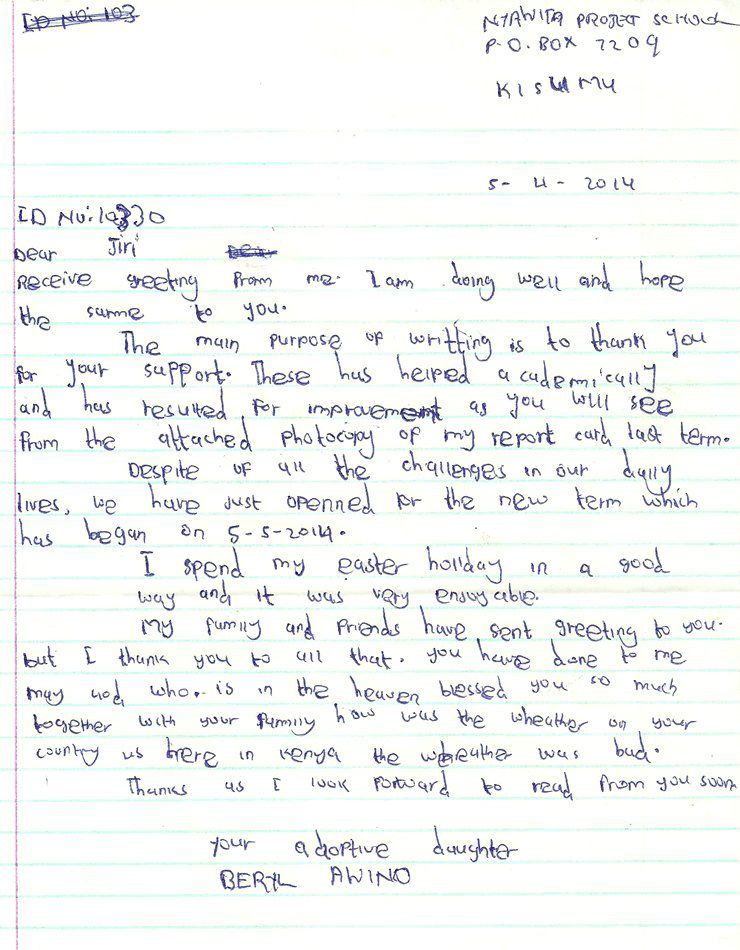 ID NO: 103
NYAWITA PROJECT SCHOOL
P.O. BOX 7209
KISUMU
5- 4 - 2014
ID No: 10330
Dear Jiri Dear
Receive greeting from me. I am doing well and hope
the same to you.
The main purpose of writting is to thank you
for your support. These has helped academically
and has resulted for improvement as you will see
from the attached photocopy of my report card last term.
Despite of all the challenges in our daily
lives, we have just openned for the new term which
has began on 5-5-2014.
I spend my easter holiday in a good
way and it was very enjoyable.
My family and friends have sent greeting to you.
but I thank you to all that. you have done to me
may god who. is in the heaven blessed you so much
together with your family how was the wheather on your
country us here in kenya the wheather was bad.
Thanks as I look forward to read from you soon
your adoptive daughter
BERYL AWINO